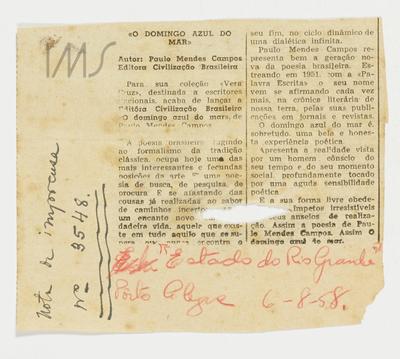 «O DOMINGO AZUL DO
MAR»
Autor: Paulo Mendes Campos
Editora Civilização Brasileira
Para sua coleção «Vera
Cruz», destinada a escritores
nacionais, acaba de lançar a
Editôra Civilização Brasileira
«O domingo azul do mar», de
Paulo Mendes Campos
A poesia brasileira fugindo
ao formalismo da tradição
clássica, ocupa hoje uma das
mais interessantes e fecundas
posições da arte uma poe-
sia de busca, de pesquisa, de
procura. E se afastando das
cousas já realizadas ao sabor
de caminhos incertos
um encanto novo
dadeira vida, aquele que exis-
te em tudo aquilo que
para que encontra o
seu fim, no ciclo dinâmico de
uma dialética infinita.
Paulo Mendes Campos re-
presenta bem a geração no-
va da poesia brasileira. Es-
treando em 1951, com a «Pa-
lavra Escrita» o seu nome
vem se afirmando cada vez
mais, na crônica literária de
nossa terra, pelas suas publi-
cações em jornais e revistas.
O domingo azul do mar é,
sobretudo, uma bela e hones-
ta experiência poética.
Apresenta a realidade vista
por um homem cônscio do
seu tempo e do seu momento
social, profundamente tocado
por uma aguda sensibilidade
poética.
E a sua forma livre obede-
impetos irresistíveis
seus anseios de realiza-
ção. Assim a poesia de Pau-
lo Mendes Campos. Assim O
domingo azul do mar.
IMS
Nota de imprensa
Nº 3548
"Estado do Rio Grande"
Porto Alegre 6-8-58.